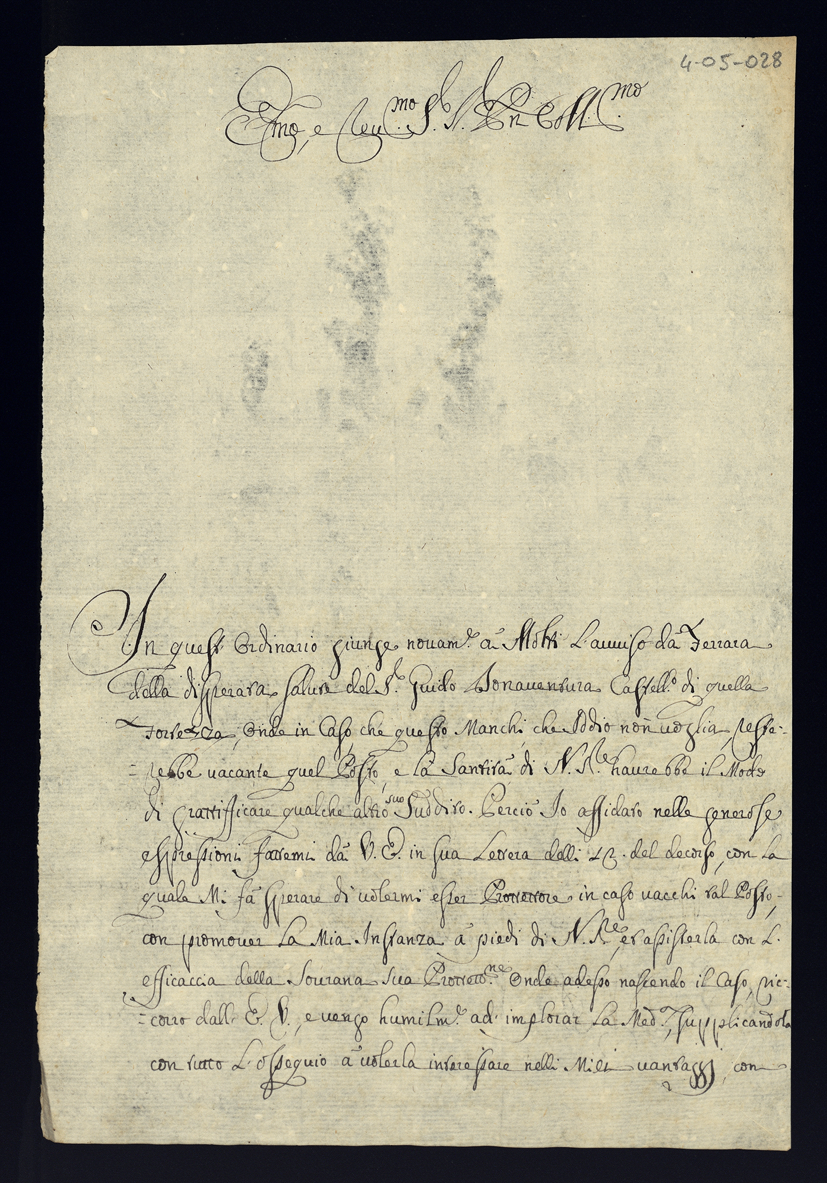 4-05-028
Em̃o, e Reu.mo S.r S.r Pr͂n Coll.mo
In quest'Ordinario giunge nouam.te à Molti L'auuiso da Ferrara
della disperata salute del S.r Guido Bonauentura Castell.o di quella
Fortezza, onde in Caso, che questo Manchi, che Iddio non uoglia, resta-
-rebbe vacante quel Posto, e la Santità di N. S.re haurebbe il Modo
di grattifficare qualche altro suo Suddito. Perciò Io affidato nelle generose
espressioni fattemi dà V. E. in sua Lettera delli 13. del decorso, con La
quale Mi fà sperare di uolermi esser Protettore in caso uacchi tal Posto,
con promouer La Mia Instanza à piedi di N. S.re, et assisterla con L'
efficaccia della Sourana sua Protteto.ne Onde adesso nascendo il Caso, ric-
-corro dall' E. V., e uengo humilm.te ad implorar La Med.ma, supplicandola
con tutto L'ossequio à uolerla interessare nelli Miei uantaggi, con